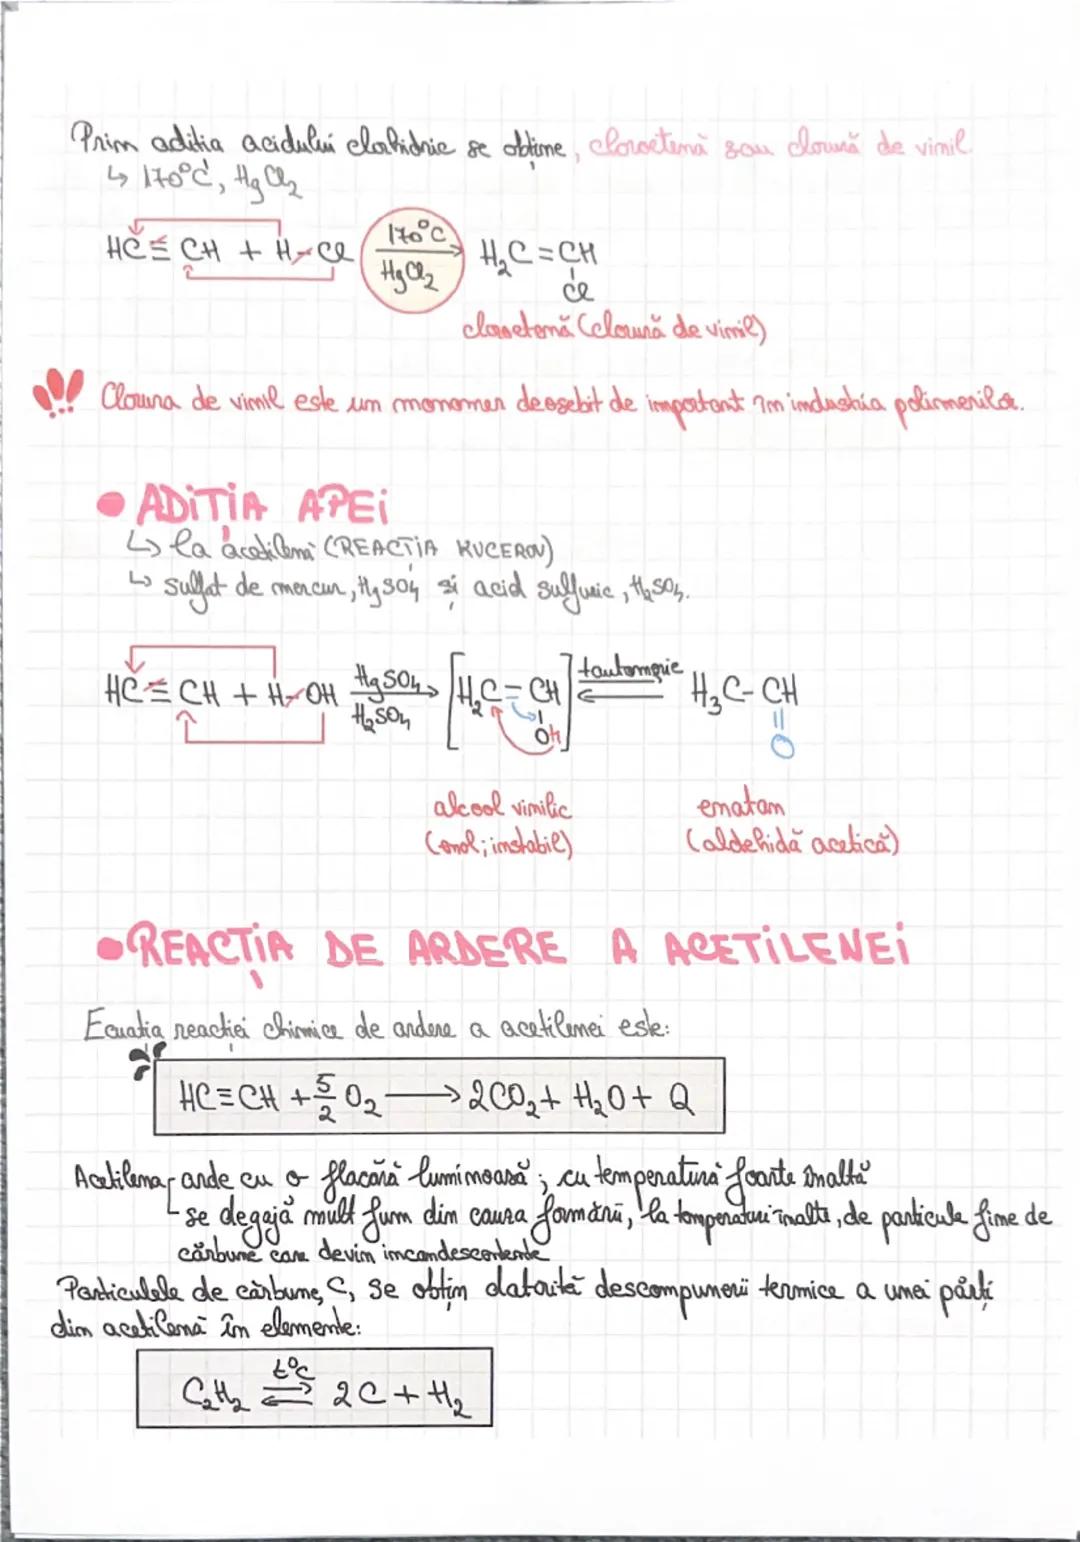 Prin adiția acidului clorhidric se obține, cloroetenă sau clorură de vinil.
↳ 170°C, HgCl₂
HC≡CH + H-Cl 170°C HgCl₂ → H₂C=CH
Cl
cloroetenă (clorură de vinil)
!!! Clorura de vinil este un monomer deosebit de important în industria polimerilor.
• ADIȚIA APEI
↳ la acetilenă (REACȚIA KUCEROV)
↳ sulfat de mercur, HgSO₄ și acid sulfuric, H₂SO₄.
HC≡CH + H-OH HgSO₄ H₂SO₄ → [H₂C=CH OH] tautomerie ⇌ H₃C-CH
O
alcool vinilic etanan
(enol; instabil) (aldehidă acetică)
• REACȚIA DE ARDERE A ACETILENEI
Ecuația reacției chimice de ardere a acetilenei este:
HC≡CH + 5/2 O₂ → 2CO₂ + H₂O + Q
Acetilena - arde cu o flacără luminoasă; cu temperatură foarte înaltă
- se degajă mult fum din cauza formării, la temperaturi înalte, de particule fine de
cărbune care devin incandescente
Particulele de cărbune, C, se obțin datorită descompunerii termice a unei părți
din acetilenă în elemente:
C₂H₂ t°C ⇌ 2C + H₂